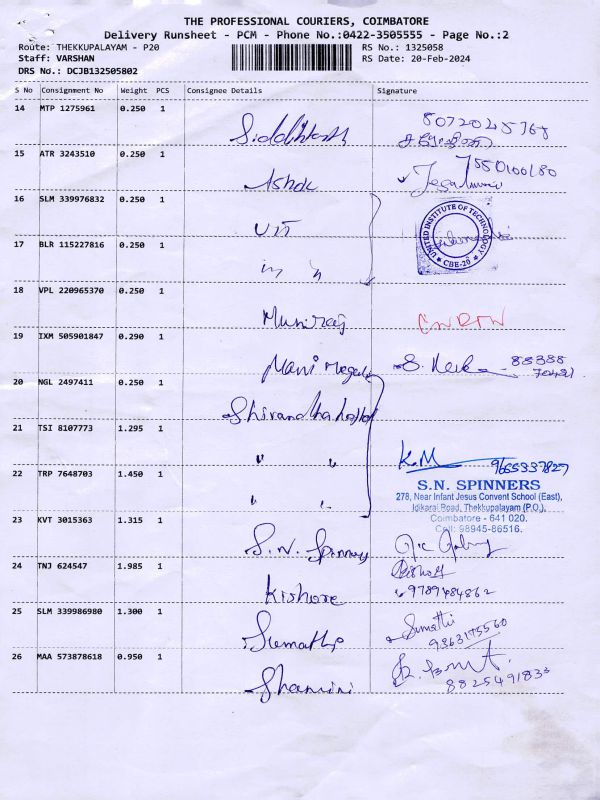 THE PROFESSIONAL COURIERS, COIMBATORE
Delivery Runsheet - PCM - Phone No.:0422-3505555 - Page No.:2
Route: THEKKUPALAYAM - P20 RS No.: 1325058
Staff: VARSHAN RS Date: 20-Feb-2024
DRS No.: DCJB132505802
S No Consignment No Weight PCS Consignee Details Signature
14 MTP 1275961 0.250 1 8072045768
Siddhharth
15 ATR 3243510 0.250 1 7550100180
Ashok
16 SLM 339976832 0.250 1
UIT UNITED INSTITUTE OF TECHNOLOGY
★ CBE-20 ★
17 BLR 115227816 0.250 1
18 VPL 220965370 0.250 1
Muniraj
19 IXM 505901847 0.290 1
Mani 88388
70421
20 NGL 2497411 0.250 1
21 TSI 8107773 1.295 1
" " K.M 9655337827
S.N. SPINNERS
22 TRP 7648703 1.450 1 278, Near Infant Jesus Convent School (East),
" " Idikarai Road, Thekkupalayam (P.O.),
Coimbatore - 641 020.
23 KVT 3015363 1.315 1 Cell: 98945-86516.
S.N. Spinners
24 TNJ 624547 1.985 1 Kishore
Kishore 9789484862
25 SLM 339986980 1.300 1 Sumathi
Sumathi 9363175560
26 MAA 573878618 0.950 1
Shamini 8825491833